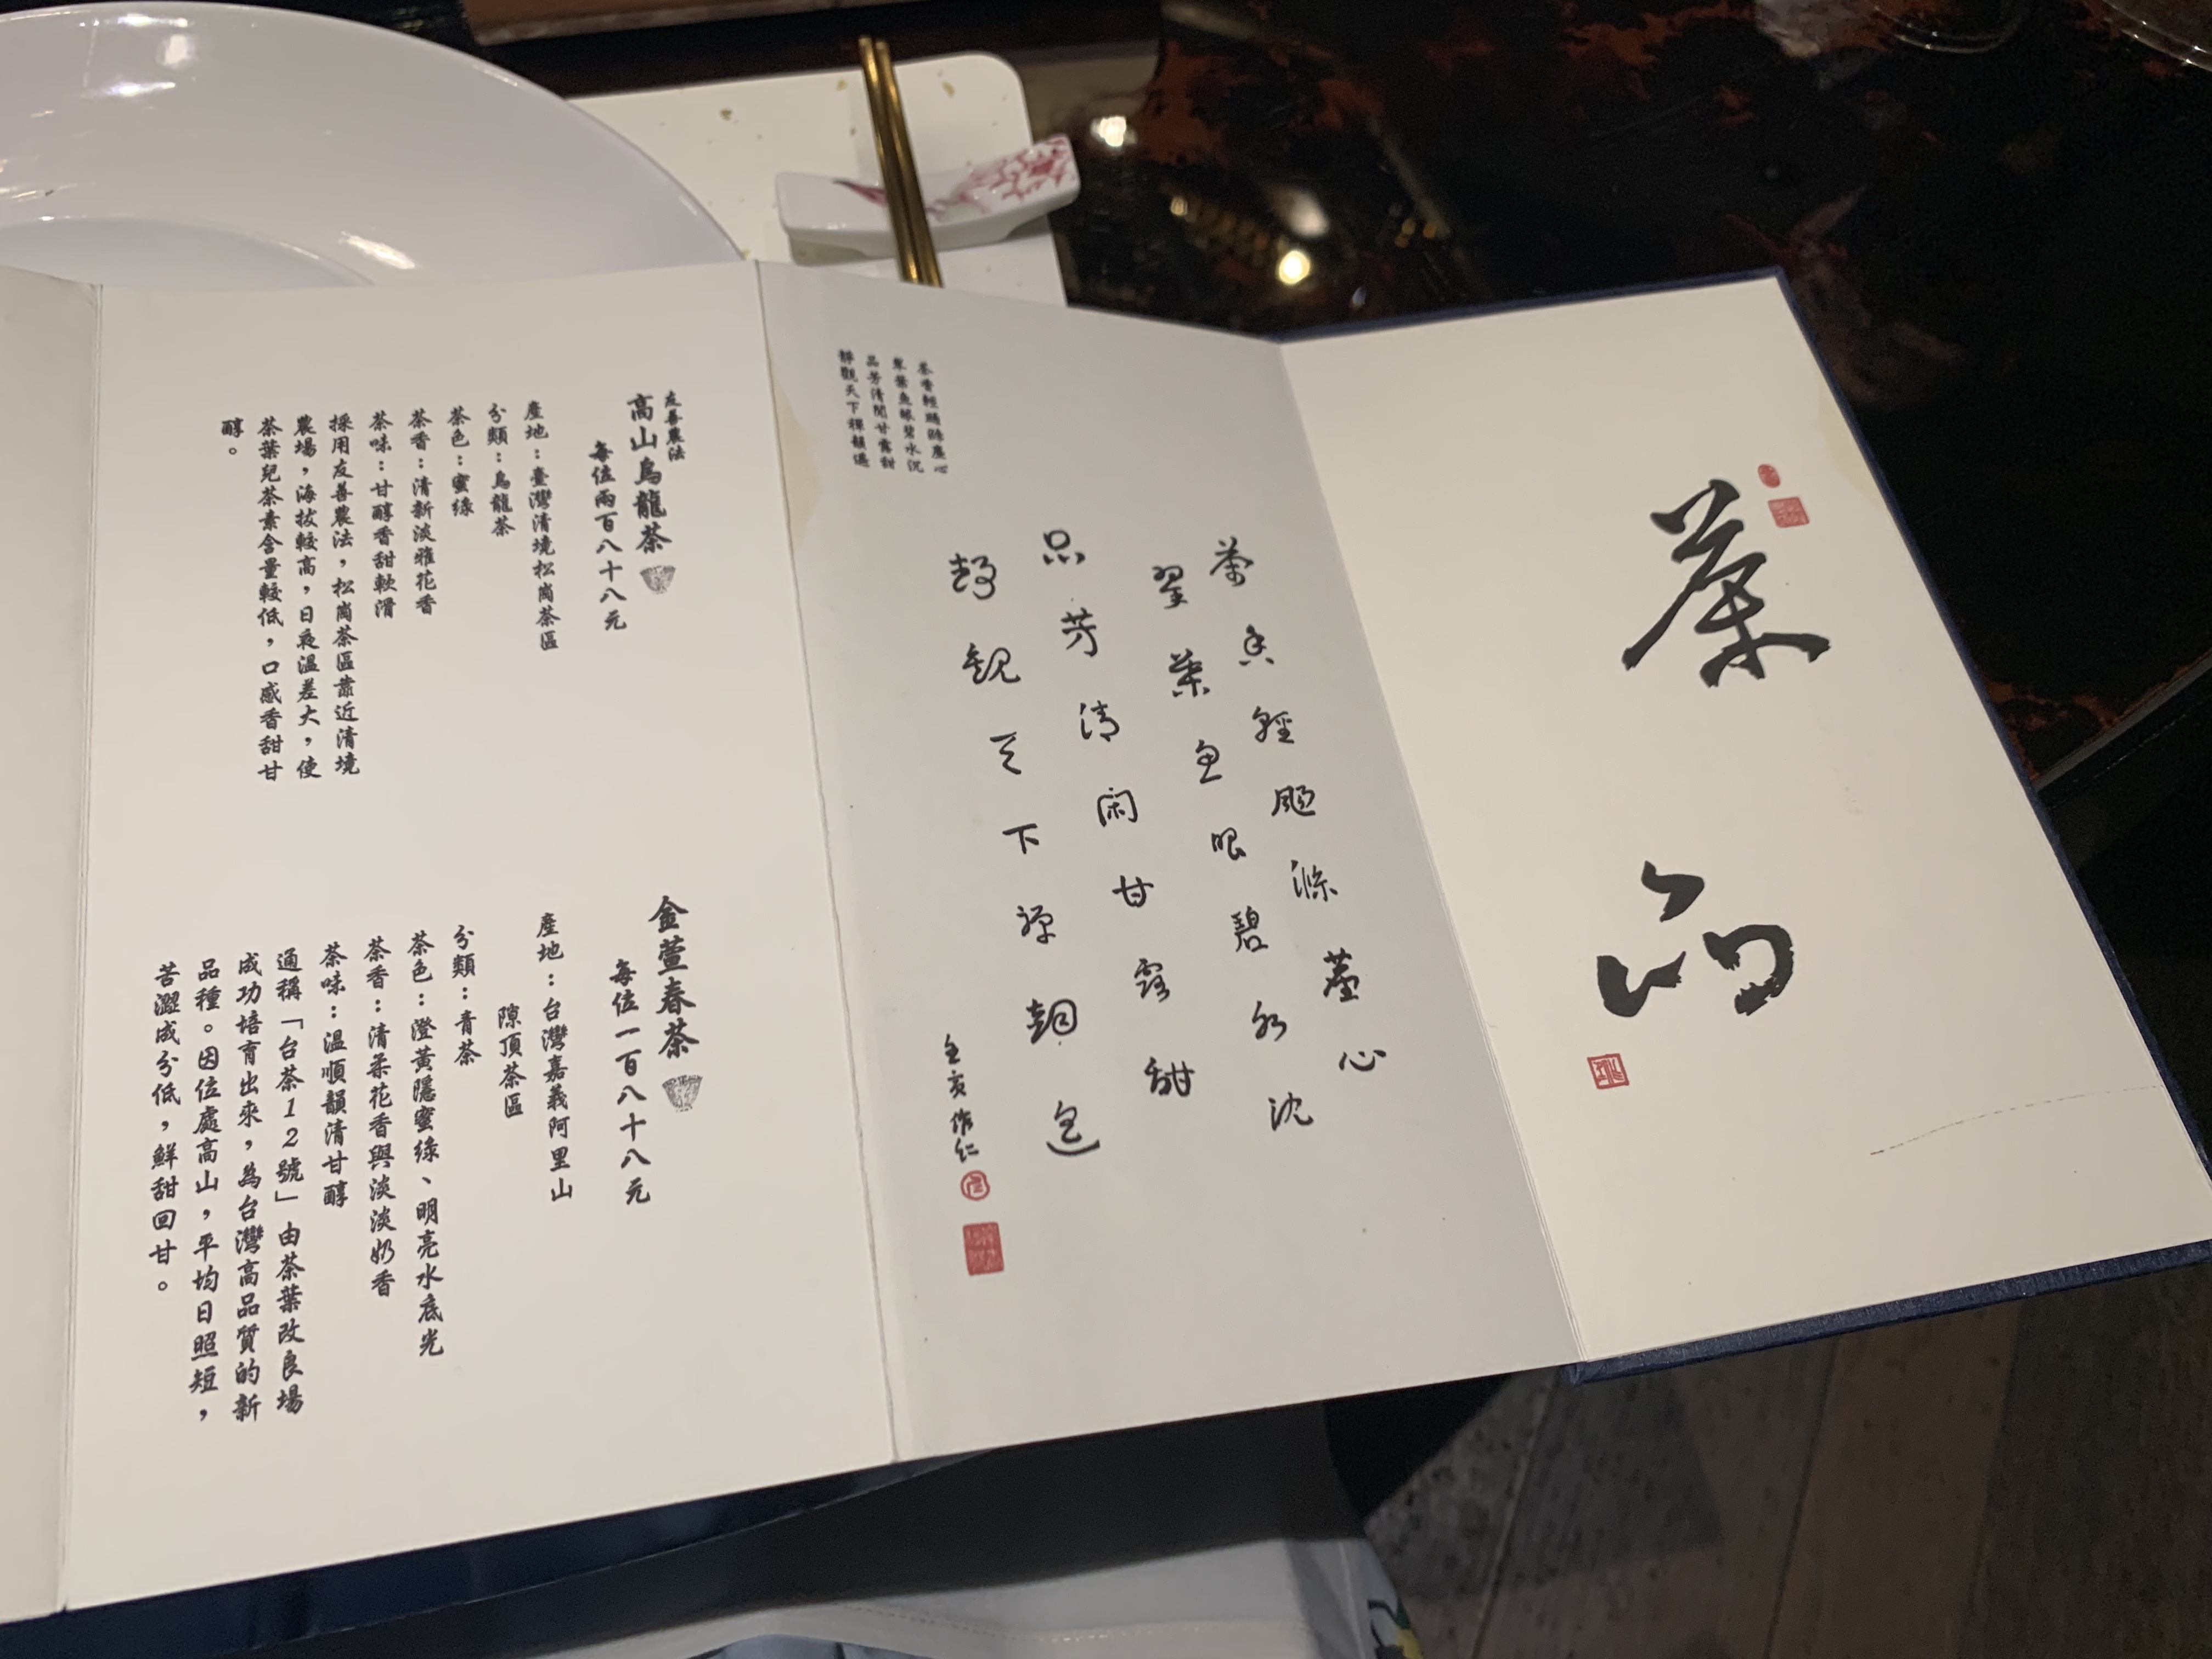 茶品
茶香輕颺滌塵心
翠葉魚眼碧水沉
品芳清閒甘露甜
靜觀天下禪韻逸
茶香輕颺滌塵心
翠葉魚眼碧水沈
品芳清闲甘露甜
靜觀天下禪韻逸
作仁
友善農法
高山烏龍茶
每位兩百八十八元
產地：臺灣清境松崗茶區
分類：烏龍茶
茶色：蜜綠
茶香：清新淡雅花香
茶味：甘醇香甜軟滑
採用友善農法，松崗茶區靠近清境
農場，海拔較高，日夜溫差大，使
茶葉兒茶素含量較低，口感香甜甘
醇。
金萱春茶
每位一百八十八元
產地：台灣嘉義阿里山
隙頂茶區
分類：青茶
茶色：澄黃隱蜜綠、明亮水底光
茶香：清柔花香與淡淡奶香
茶味：溫順韻清甘醇
通稱「台茶12號」由茶葉改良場
成功培育出來，為台灣高品質的新
品種。因位處高山，平均日照短，
苦澀成分低，鮮甜回甘。